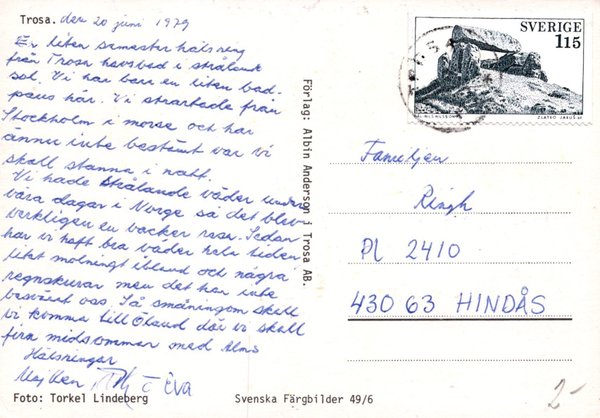 Trosa. den 20 juni 1979
En liten semester hälsning
från Trosa havsbad i strålande
sol. Vi har bara en liten bad-
paus här. Vi startade från
Stockholm i morse och har
ännu inte bestämt var vi
skall stanna i natt.
Vi hade strålande väder under
våra dagar i Norge så det blev
verkligen en vacker resa. Sedan
har vi haft bra väder hela tiden
lite molnigt ibland och några
regnskurar men det har inte
besvärat oss. Så småningom skall
vi komma till Öland där vi skall
fira midsommar med
Hälsningar
Maj Eva
Foto: Torkel Lindeberg
Svenska Färgbilder 49/6
Förlag: Albin Anderson i Trosa AB.
SVERIGE
115
TROSA
ZLATKO JAKUS SC
Familjen
Ringh
Pl 2410
430 63 HINDÅS
2-